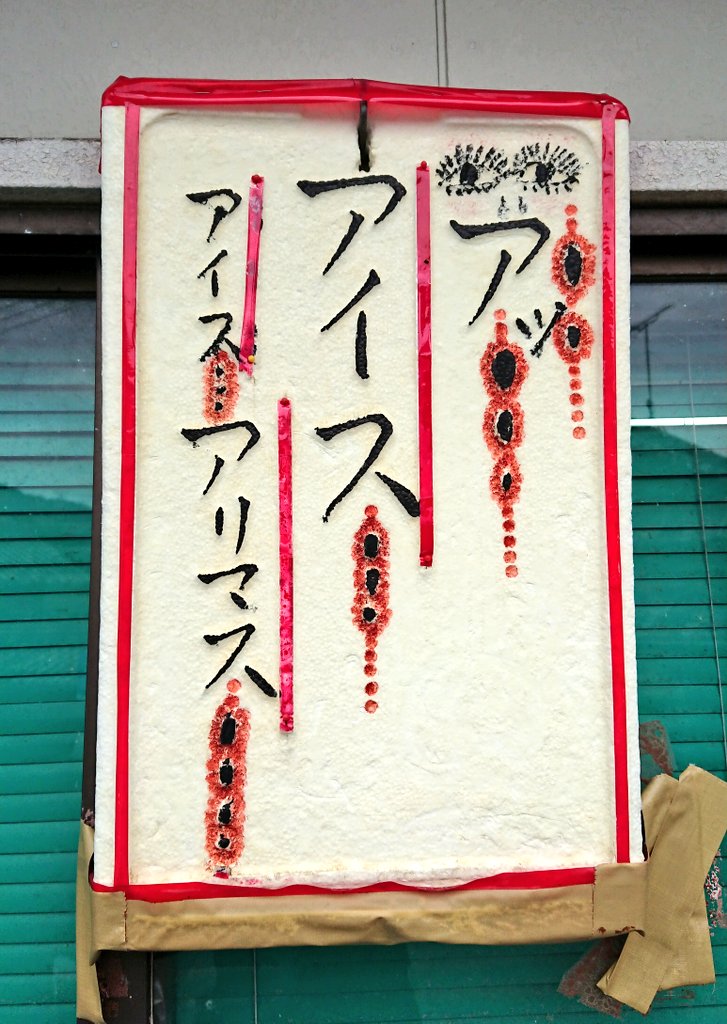 アッ・・・・・
アイス・・・
アイス・・・アリマス・・・・